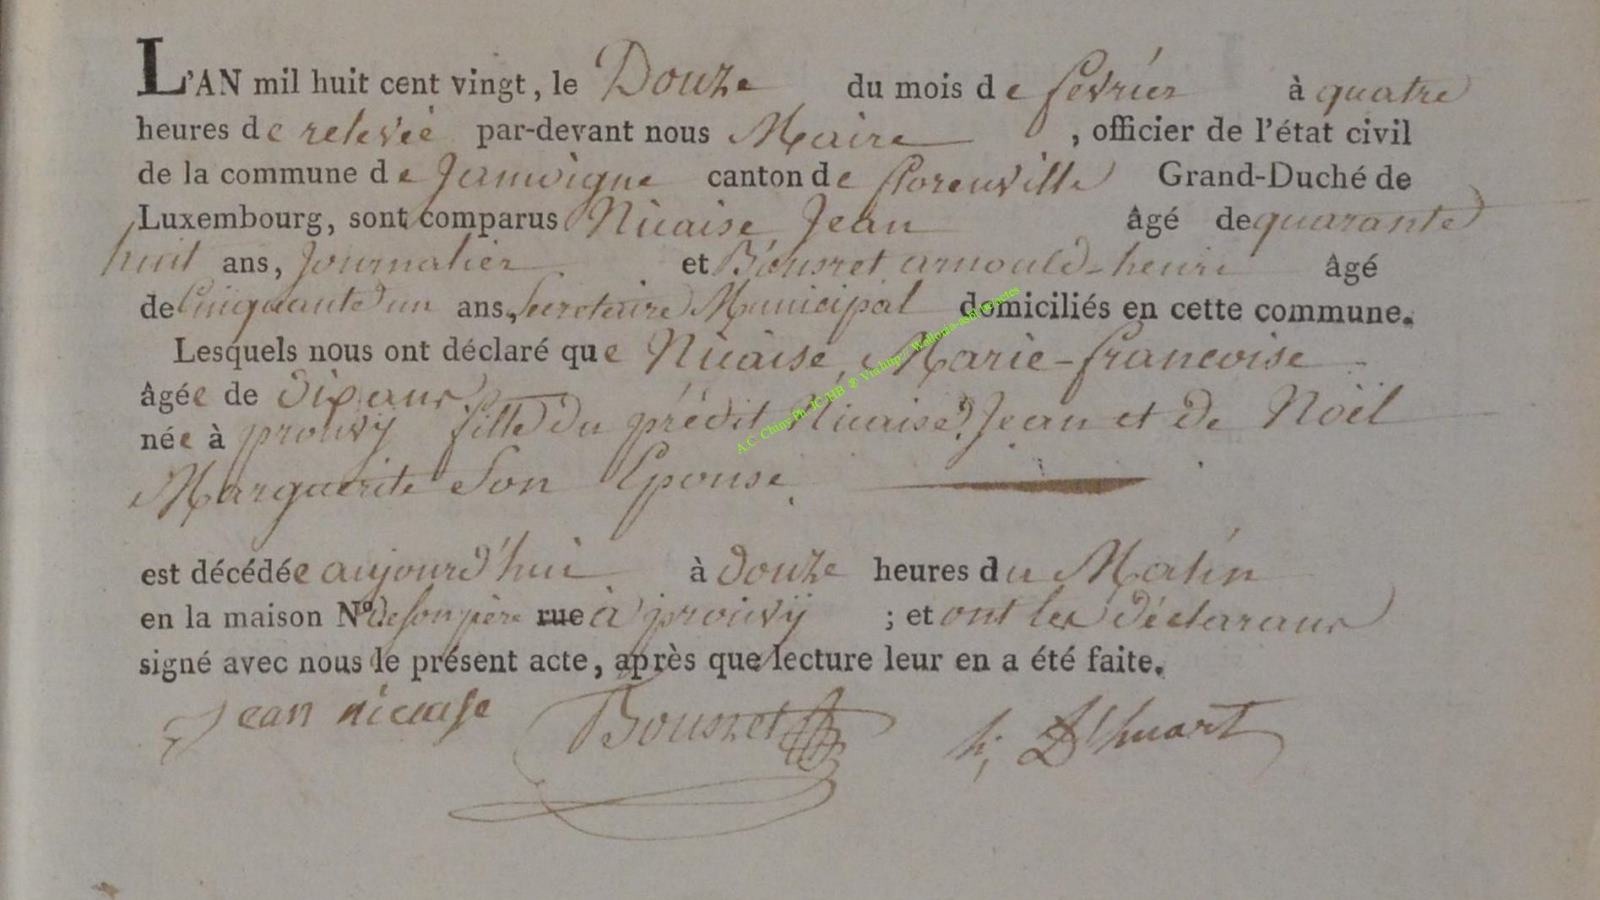 L'AN mil huit cent vingt, le Douze du mois de février à quatre
heures de relevée par-devant nous Maire, officier de l'état civil
de la commune de Jamoigne canton de florenville Grand-Duché de
Luxembourg, sont comparus Nicaise Jean âgé de quarante
huit ans, Journalier et Bousret arnould-henri âgé
de Cinquante un ans, Secretaire Municipal domiciliés en cette commune.
Lesquels nous ont déclaré que Nicaise, Marie-francoise
âgée de dix ans
née à prouvy fille du prédit Nicaise Jean et de Noël
Marguerite Son Epouse.
est décédée aujourd'hui à douze heures du Matin
en la maison Nº de son père rue à prouvy ; et ont les déclarans
signé avec nous le présent acte, après que lecture leur en a été faite.
Jean nicaise Bousret h; D'huart
A.C. Chiny Ph JC HB @ Via http://